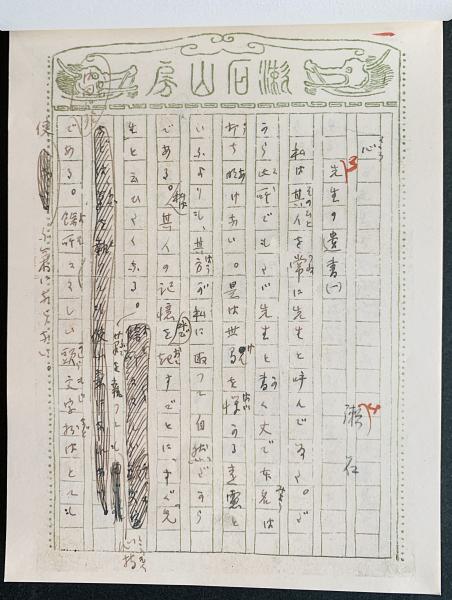 漱石山房
心
先生の遺書(一)
漱石
私は其人を常に先生と呼んでゐた。だ
から此所でもたゞ先生と書く丈で本名は
打ち明けない。是は世間を憚かる遠慮と
いふよりも、其方が私に取つて自然だから
である。私は其人の記憶を呼び起すごとに、すぐ「先
生」と云ひたくなる。
筆を執つても
心持
である。餘所々々しい頭文字抔はとても
使ふ氣にならない。